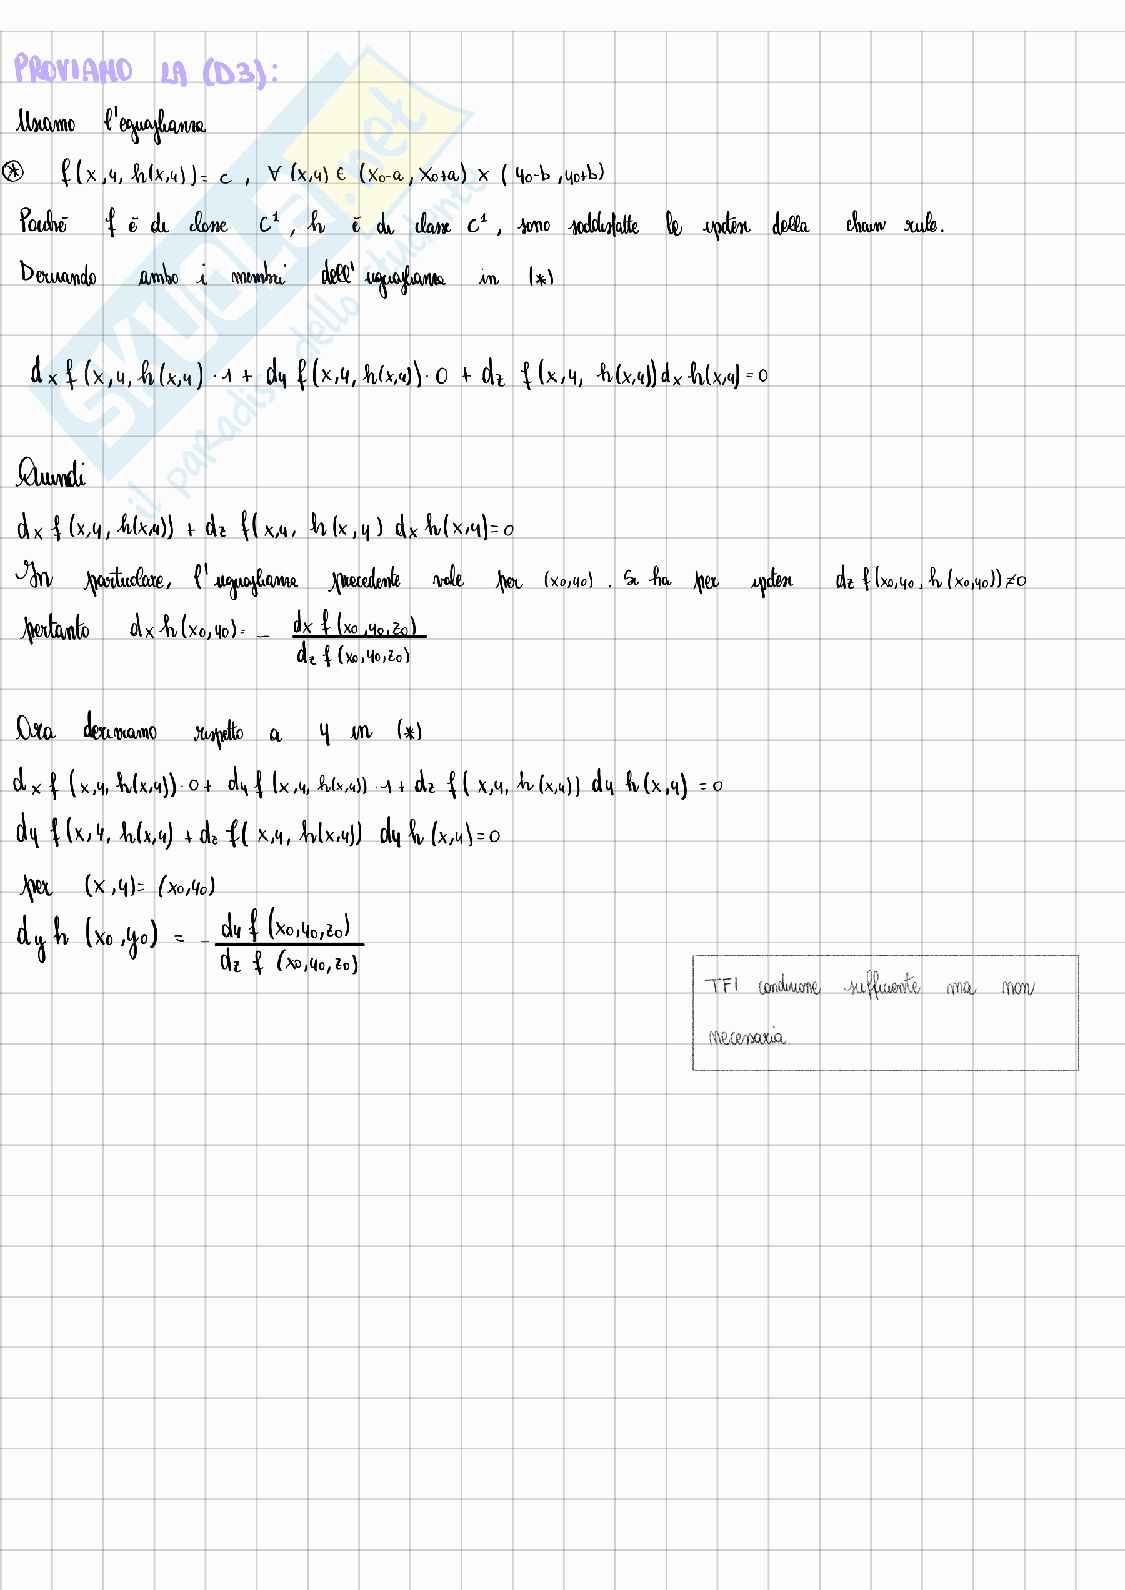 PROVIAMO LA (D3):
Usiamo l'eguaglianza
⊛ f(x,y, h(x,y)) = c , ∀ (x,y) ∈ (x₀-a, x₀+a) × (y₀-b, y₀+b)
Poichè f è di classe C¹, h è di classe C¹, sono soddisfatte le ipotesi della chain rule.
Derivando ambo i membri dell'uguaglianza in (*)
dₓ f(x,y, h(x,y) · 1 + dy f(x,y, h(x,y)) · 0 + dz f(x,y, h(x,y)) dₓ h(x,y) = 0
Quindi
dₓ f(x,y, h(x,y)) + dz f(x,y, h(x,y) dₓ h(x,y) = 0
In particolare, l'uguaglianza precedente vale per (x₀,y₀). Si ha per ipotesi dz f(x₀,y₀, h(x₀,y₀)) ≠ 0
pertanto dₓ h(x₀,y₀) = - dₓ f(x₀,y₀,z₀)
dz f(x₀,y₀,z₀)
Ora deriviamo rispetto a y in (*)
dₓ f(x,y, h(x,y)) · 0 + dy f(x,y, h(x,y)) · 1 + dz f(x,y, h(x,y)) dy h(x,y) = 0
dy f(x,y, h(x,y) + dz f(x,y, h(x,y)) dy h(x,y) = 0
per (x,y) = (x₀,y₀)
dy h (x₀,y₀) = - dy f (x₀,y₀,z₀)
dz f (x₀,y₀,z₀)
TFI condizione sufficiente ma non
necessaria
SKUOLA.net
il paradiso dello studente